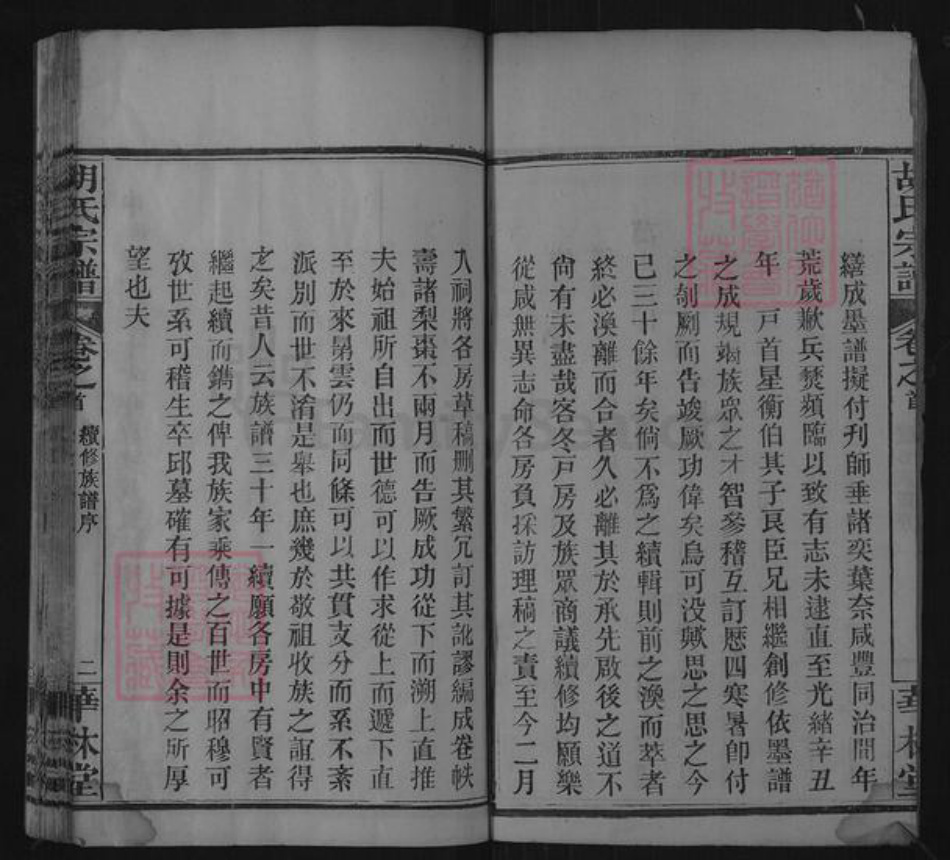 胡氏宗譜
卷之首
華林堂
繕成墨譜擬付刊師垂諸奕葉奈咸豐同治間年
荒歲歉兵焚頻臨以致有志未逮直至光緒辛丑
年戸首星衡伯其子良臣兄相繼創修依墨譜
之成規竭族眾之才智參稽互訂歴四寒暑卽付
之剞劂而告竣厥功偉矣烏可没歟思之思之今
已三十餘年矣倘不爲之續輯則前之渙而萃者
終必渙離而合者久必離其於承先啟後之道不
尙有未盡哉客冬戸房及族眾商議續修均願樂
從咸無異志命各房負採訪理稿之責至今二月
入祠將各房草稿刪其繁冗訂其訛謬編成卷帙
壽諸梨棗不兩月而告厥成功從下而溯上直推
夫始祖所自出而世德可以作求從上而遞下直
至於來晜雲仍而同條可以共貫支分而系不紊
派別而世不淆是舉也庶幾於敬祖收族之誼得
之矣昔人云族譜三十年一續願各房中有賢者
繼起續而鐫之俾我族家乘傳之百世而昭穆可
攷世系可稽生卒邱墓確有可據是則余之所厚
望也夫
胡氏宗譜
卷之首
續修族譜序
二
華林堂